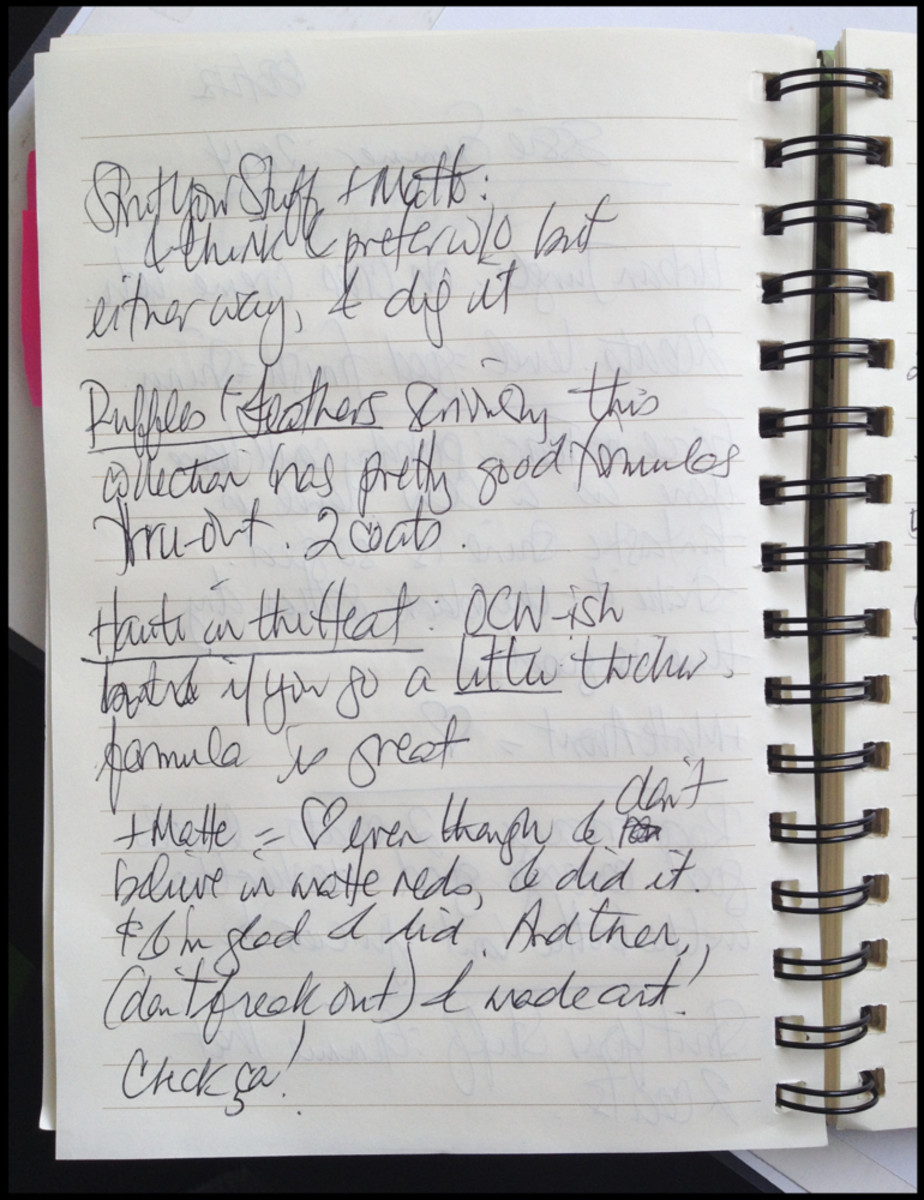 Strut Your Stuff + Matte:
I think I prefer w/o but
either way, I dig it
Ruffles & Feathers Seriously this
collection has pretty good formulas
thru-out. 2 coats.
Haute in the Heat: OCW-ish
but if you go a little thicker.
formula is great
+Matte = ♡ even though I don't
believe in matte reds, I did it.
& I'm glad I did. And then,
(don't freak out) I made art!
Check ça!